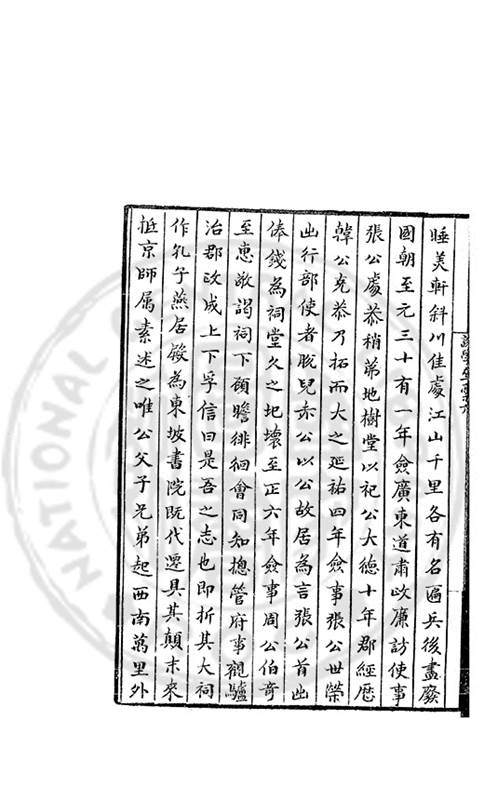 睡美軒斜川佳處江山千里各有名匾兵後盡廢
國朝至元三十有一年僉廣東道肅政廉訪使事
張公處恭稍苐地樹堂以祀公大德十年郡經歷
韓公克恭乃拓而大之延祐四年僉事張公世榮
出行部使者脫兒赤公以公故居為言張公首出
俸錢為祠堂久之圯壞至正六年僉事周公伯奇
至惠敬謁祠下顧瞻徘徊會同知摠管府事觀驢
治郡政成上下孚信曰是吾之志也即折其大祠
作孔子燕居殿為東坡書院既代還具其顛末來
抵京師属素述之唯公父子兄弟起西南萬里外
NATIONAL